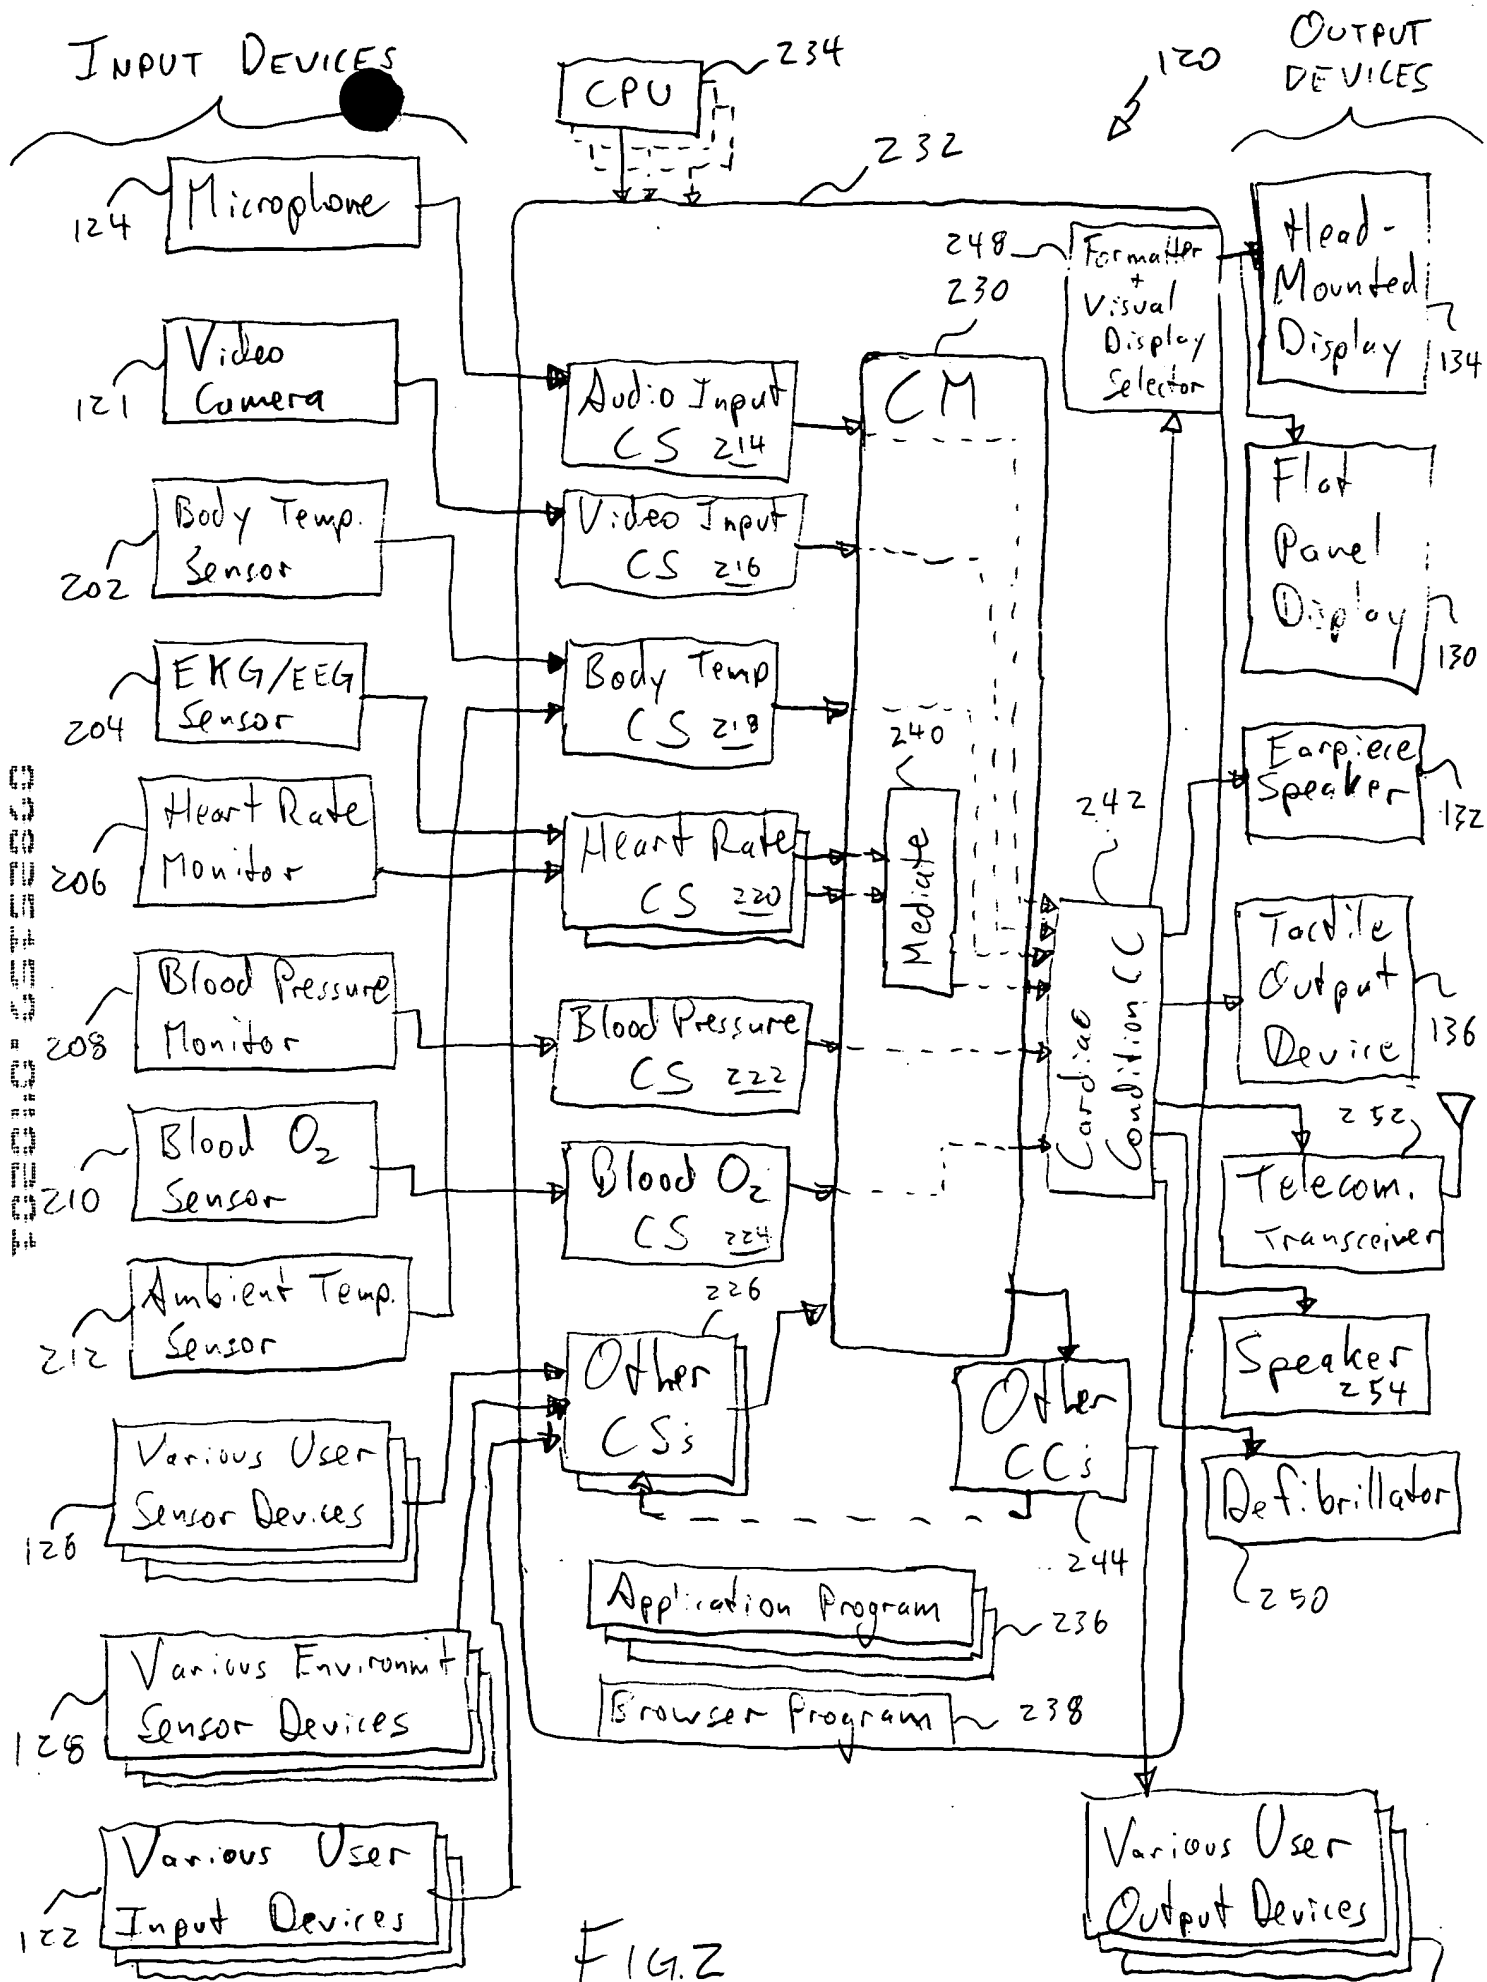 INPUT DEVICES
OUTPUT
DEVICES
CPU
234
120
232
124
Microphone
121
Video
Camera
202
Body Temp.
Sensor
204
EKG/EEG
Sensor
206
Heart Rate
Monitor
208
Blood Pressure
Monitor
210
Blood O2
Sensor
212
Ambient Temp.
Sensor
126
Various User
Sensor Devices
128
Various Environmt
Sensor Devices
122
Various User
Input Devices
Audio Input
CS 214
Video Input
CS 216
Body Temp
CS 218
Heart Rate
CS 220
Blood Pressure
CS 222
Blood O2
CS 224
226
Other
CSs
230
CM
240
Mediate
242
Cardiac
Condition CC
Other
CCs
244
248
Formatter
+
Visual
Display
Selector
Application Program
236
Browser Program
238
Head-
Mounted
Display
134
Flat
Panel
Display
130
Earpiece
Speaker
132
Tactile
Output
Device
136
252
Telecom.
Transceiver
Speaker
254
Defibrillator
250
Various User
Output Devices
FIG.2